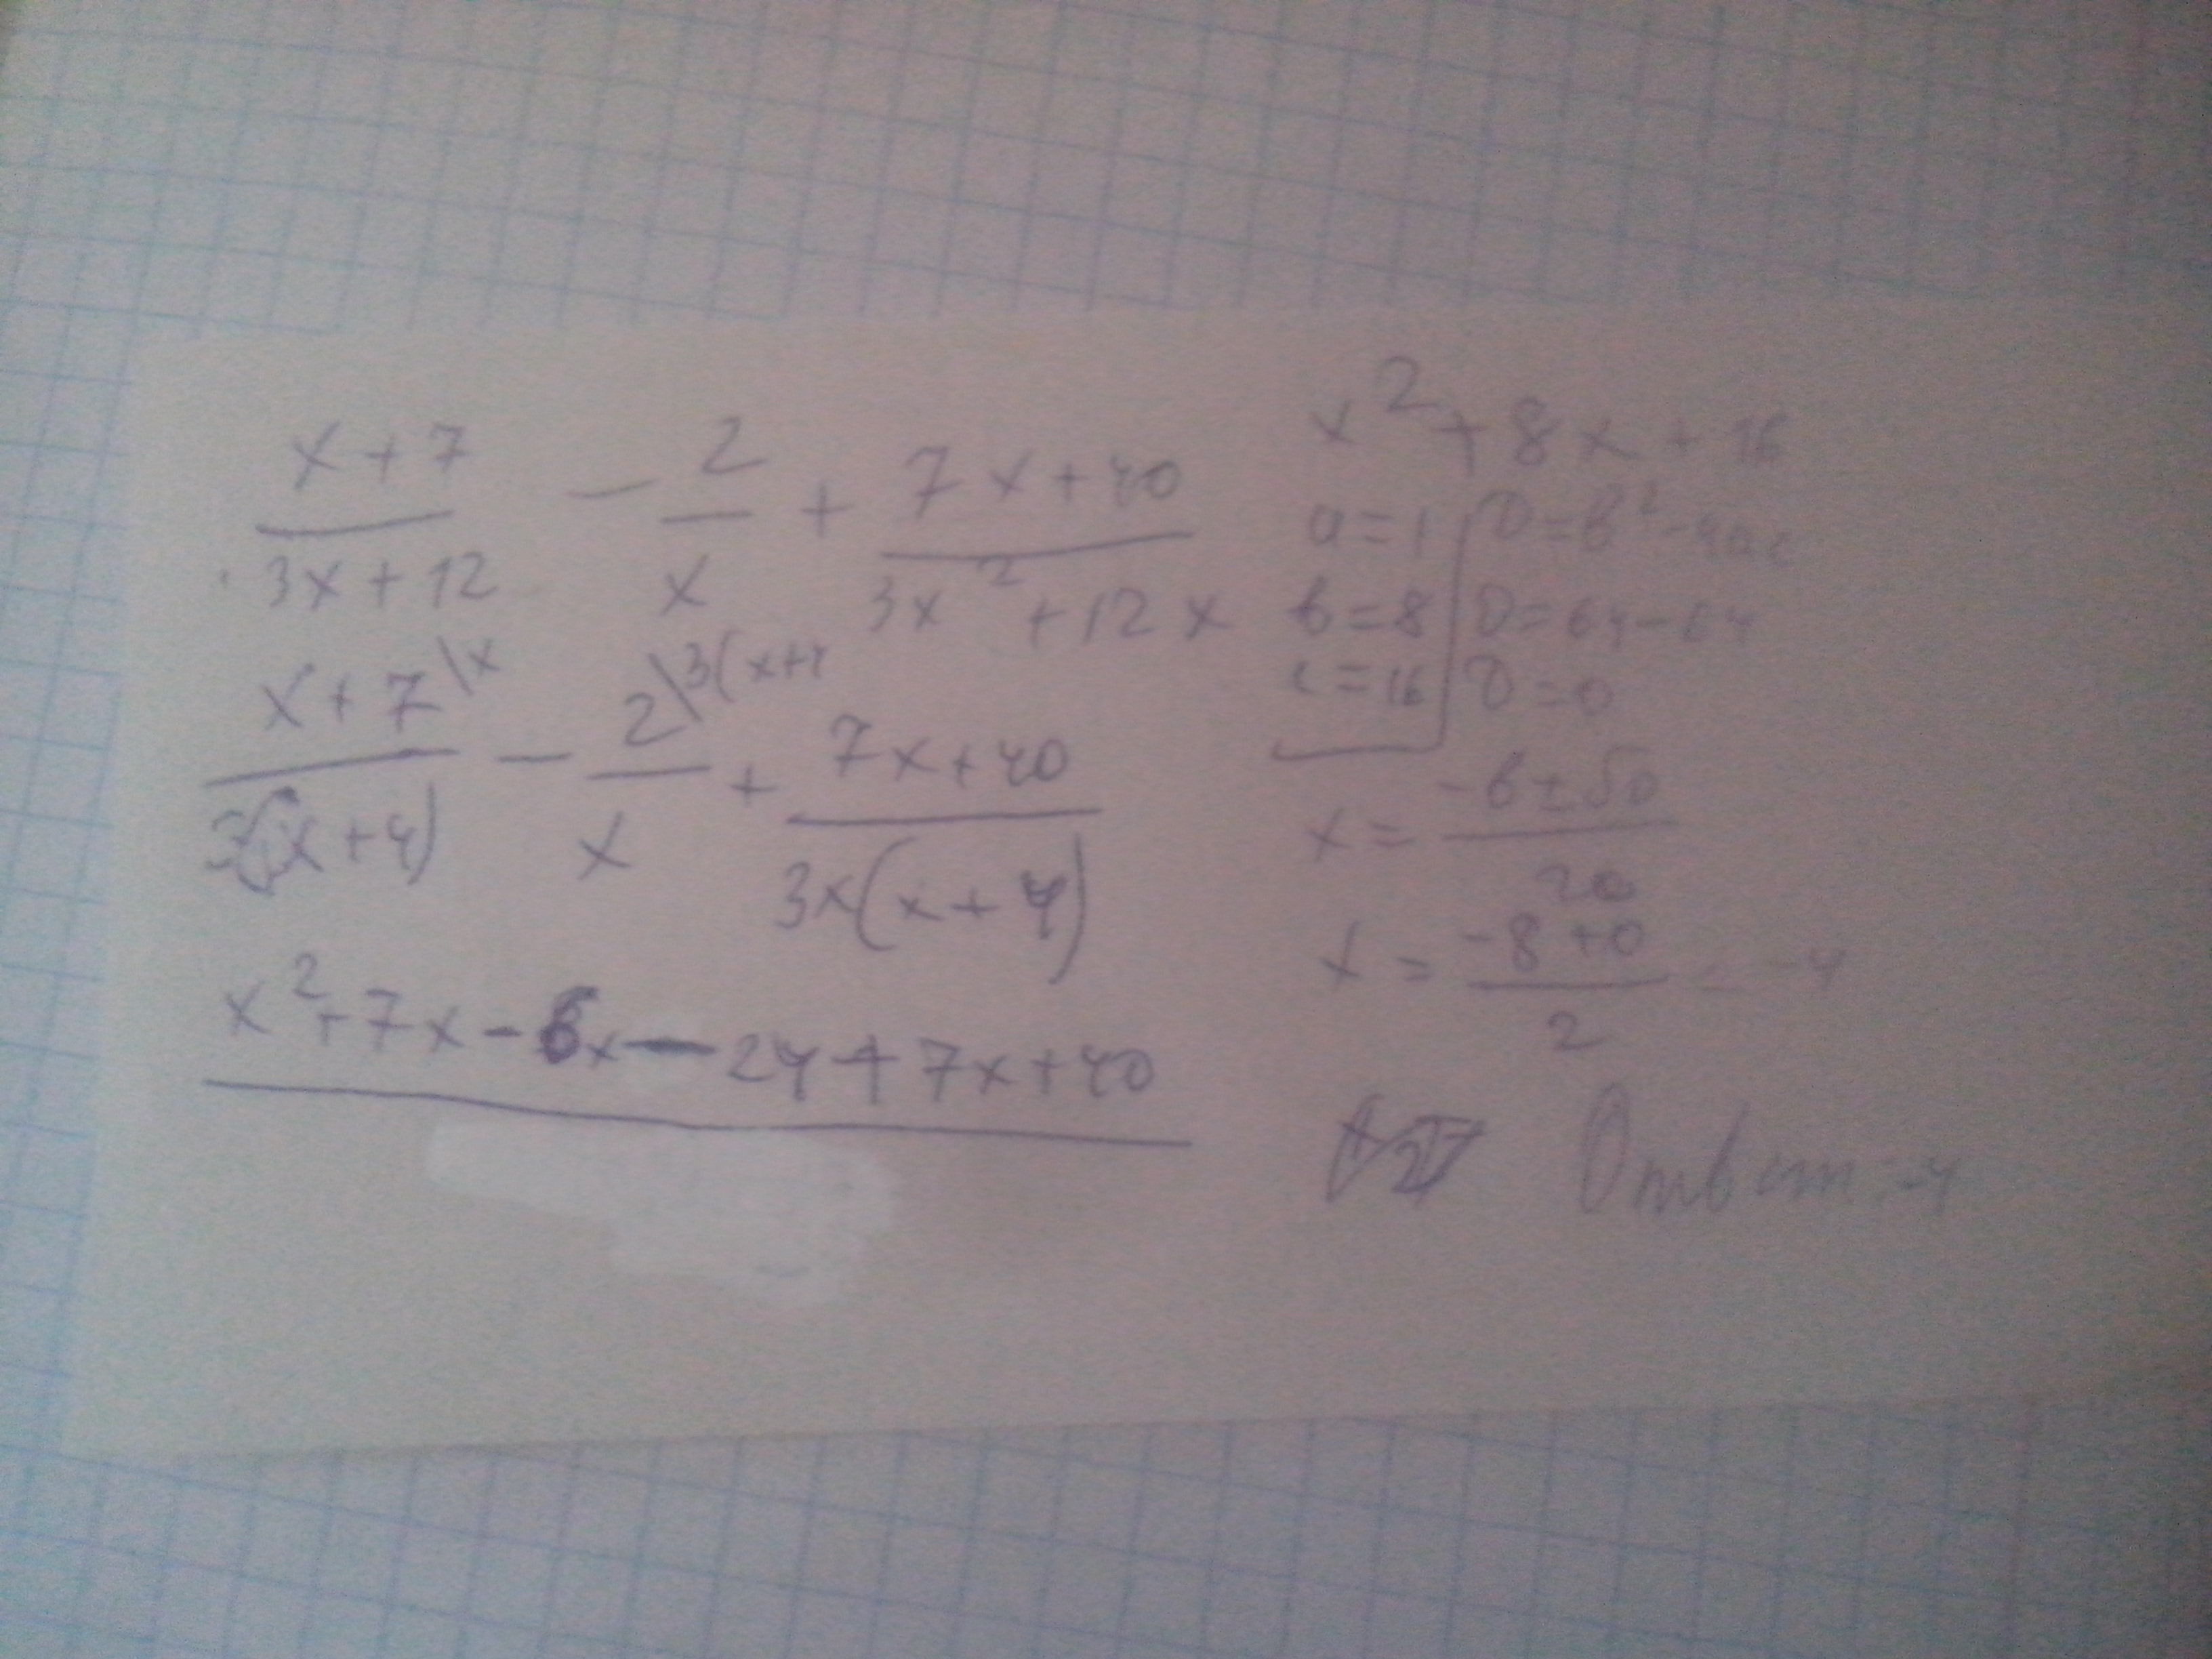 x+7 / 3x+12 − 2 / x + 7x+40 / 3x²+12x
x+7\x / 3(x+4) − 2\3(x+4 / x + 7x+40 / 3x(x+4)
x²+7x−6x−24+7x+40
x²+8x+16
a=1 D=b²−4ac
b=8 D=64−64
c=16 D=0
x= −b±√D / 2a
x = −8+0 / 2 = −4
Ответ: −4